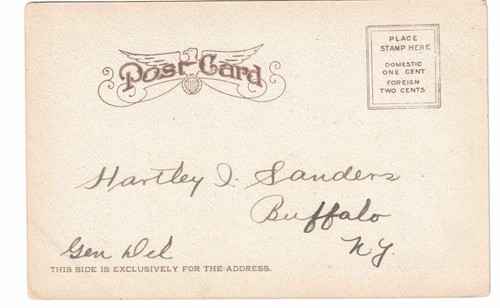 Post Card
PLACE
STAMP HERE
DOMESTIC
ONE CENT
FOREIGN
TWO CENTS
Hartley I. Sanders
Buffalo
N.Y.
Gen Del
THIS SIDE IS EXCLUSIVELY FOR THE ADDRESS.